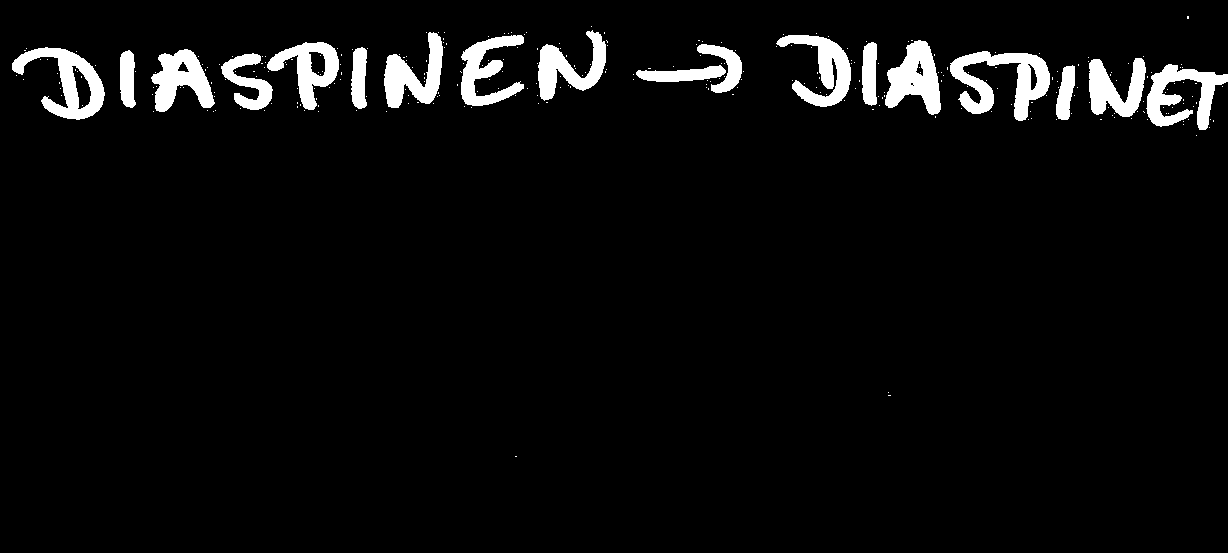 DIASPINEN → DIASPINET